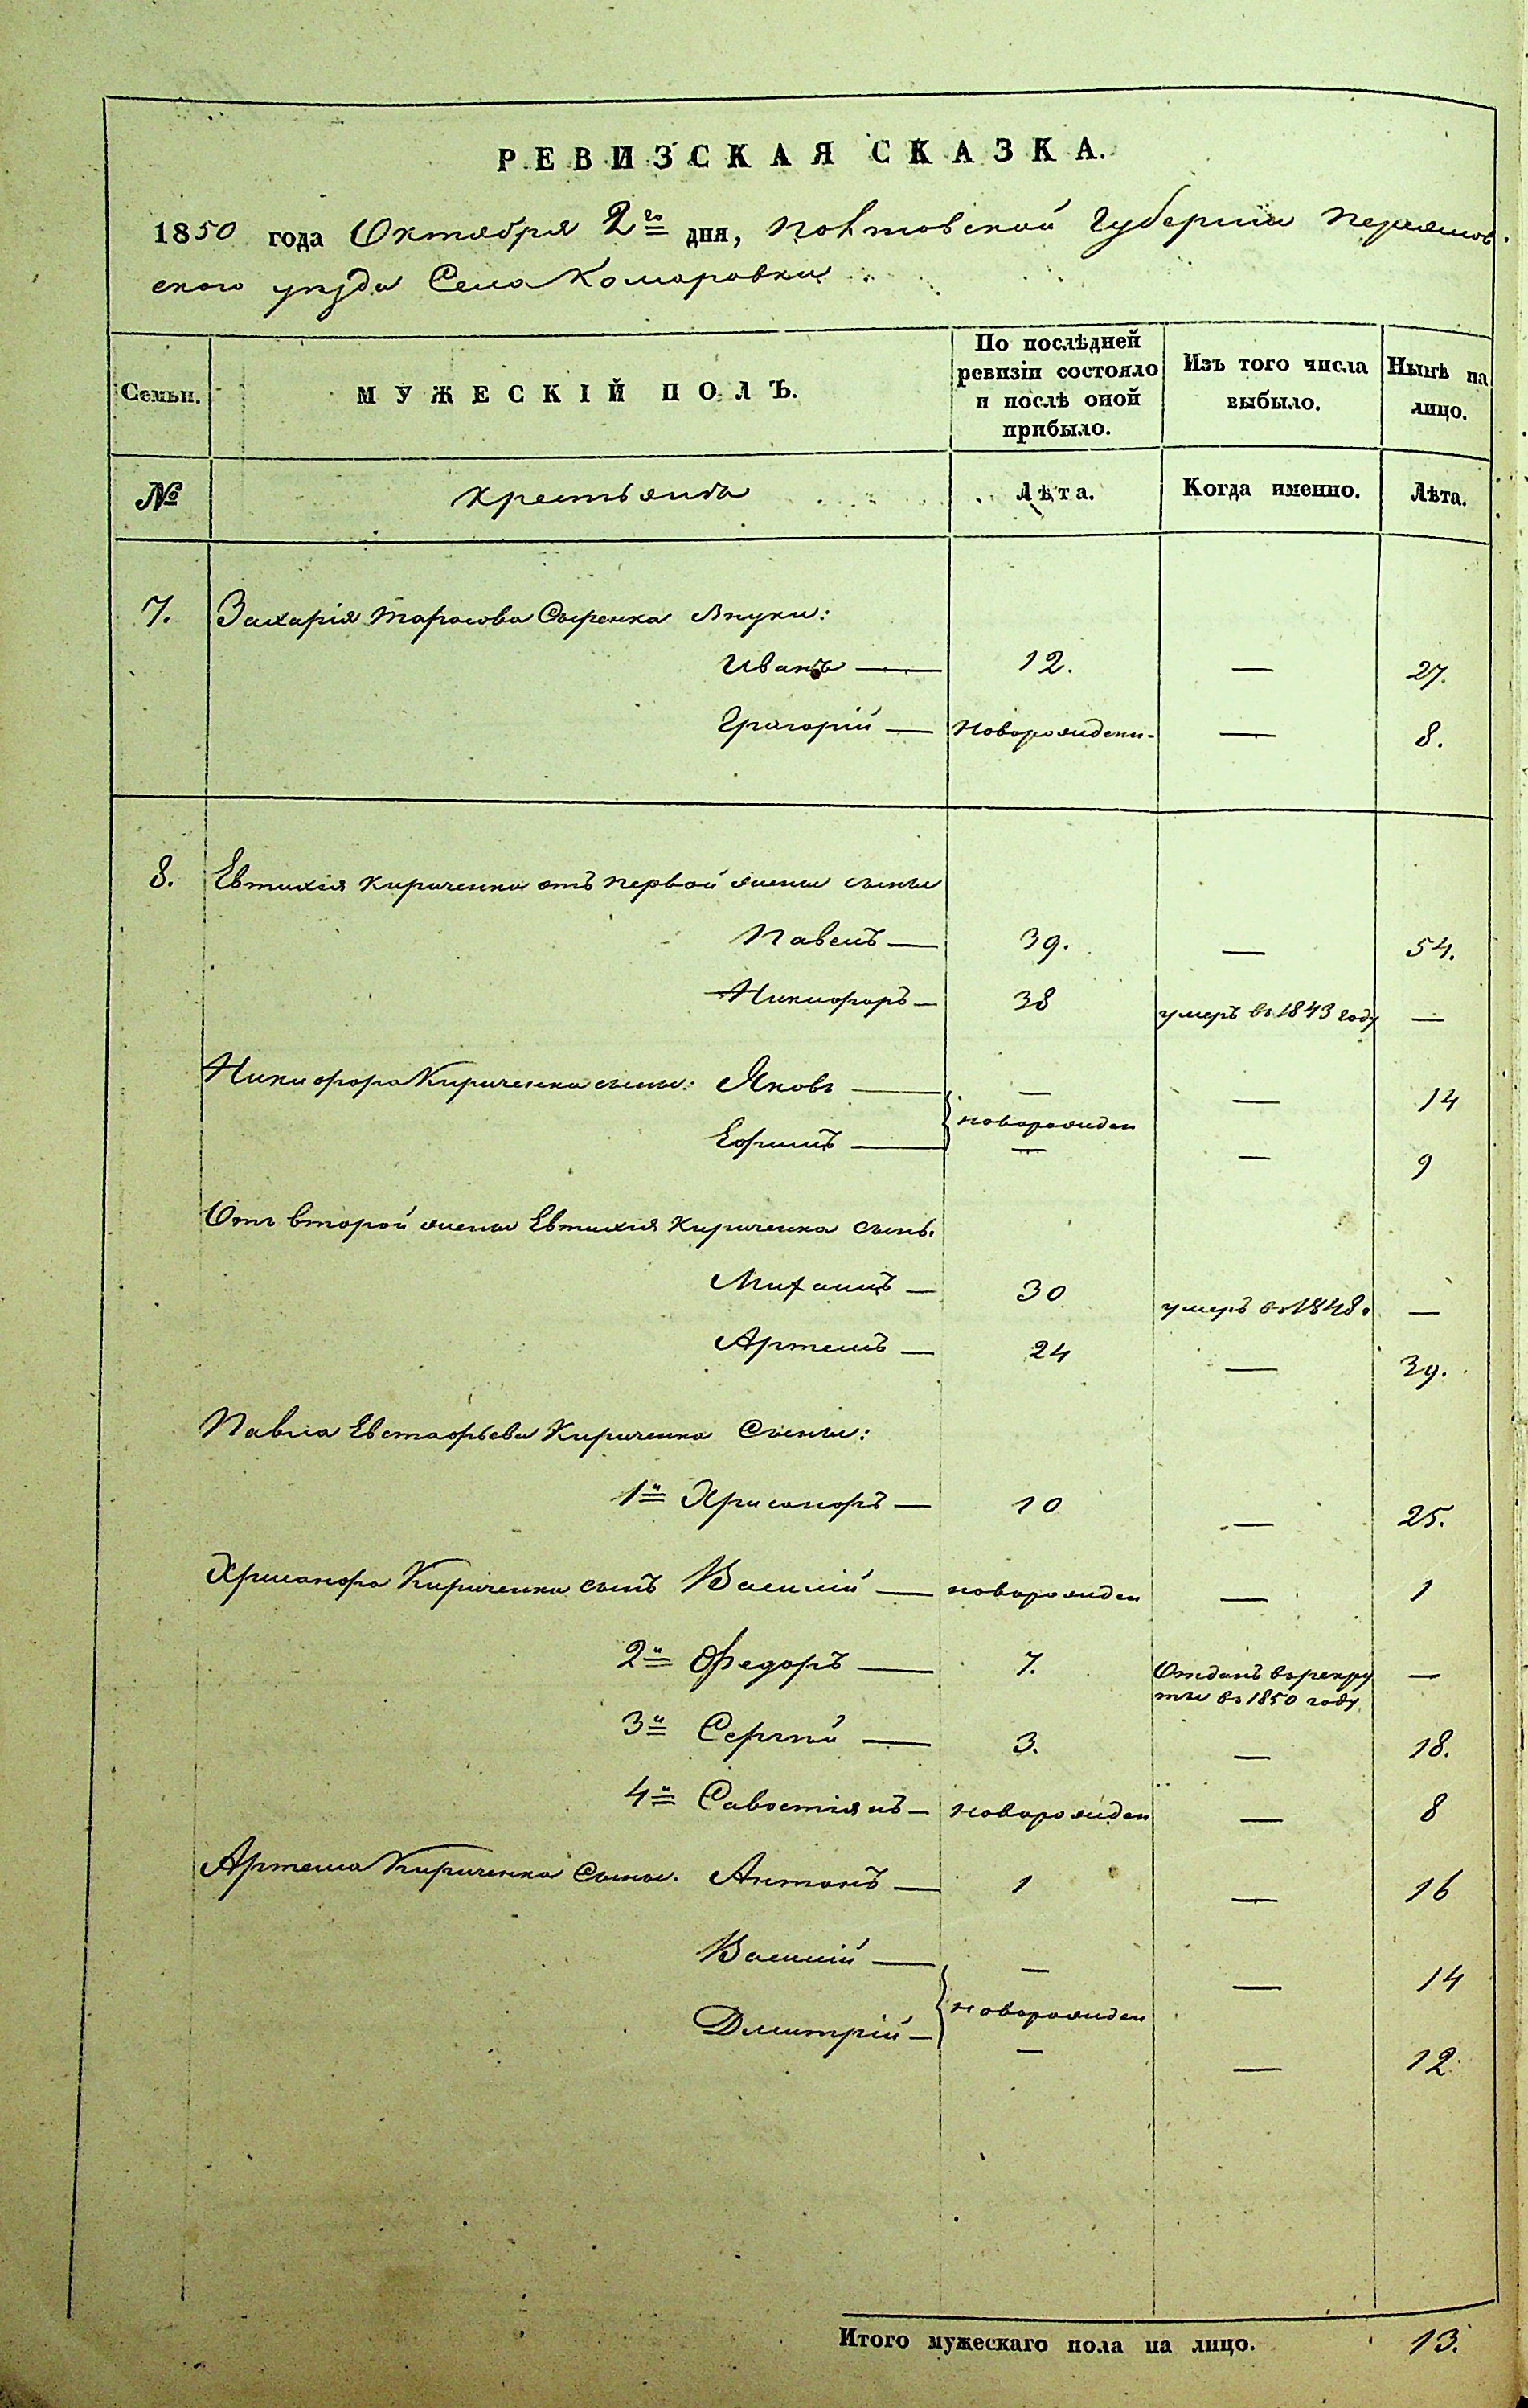 РЕВИЗСКАЯ СКАЗКА.
1850 года Октября 2го дня, Полтавской Губернии Переяслов-
ского уѣзда Села Комаровки
Семьи. МУЖЕСКІЙ ПОЛЪ. По послѣдней ревизіи состояло и послѣ оной прибыло. Изъ того числа выбыло. Нынѣ на лицо.
№ крестьянъ Лѣта. Когда именно. Лѣта.
7. Захарія Тарасова Сыренка внуки:
Иванъ — 12. — 27.
Григорій — новорожден- — 8.
8. Евтихія Кириченка отъ первой жены сыны
Павелъ — 39. — 54.
Никифоръ — 38 умеръ въ 1843 году —
Никифора Кириченка сыны: Яковъ — — — 14
новорожден
Ефимъ — — — 9
Отъ второй жены Евтихія Кириченка сынъ.
Михаилъ — 30 умеръ въ 1848. —
Артемъ — 24 — 39.
Павла Евстафьева Кириченка Сыны:
1й Хрисанфъ — 10 — 25.
Хрисанфа Кириченка сынъ Василій — новорожден — 1
2й Федоръ — 7. Отданъ въ рекру —
ты въ 1850 году
3й Сергѣй — 3. — 18.
4й Савостіянъ — новорожден — 8
Артема Кириченка Сыны. Антонъ — 1 — 16
Василій — — — 14
новорожден
Дмитрій — — — 12
Итого мужескаго пола на лицо. 13.